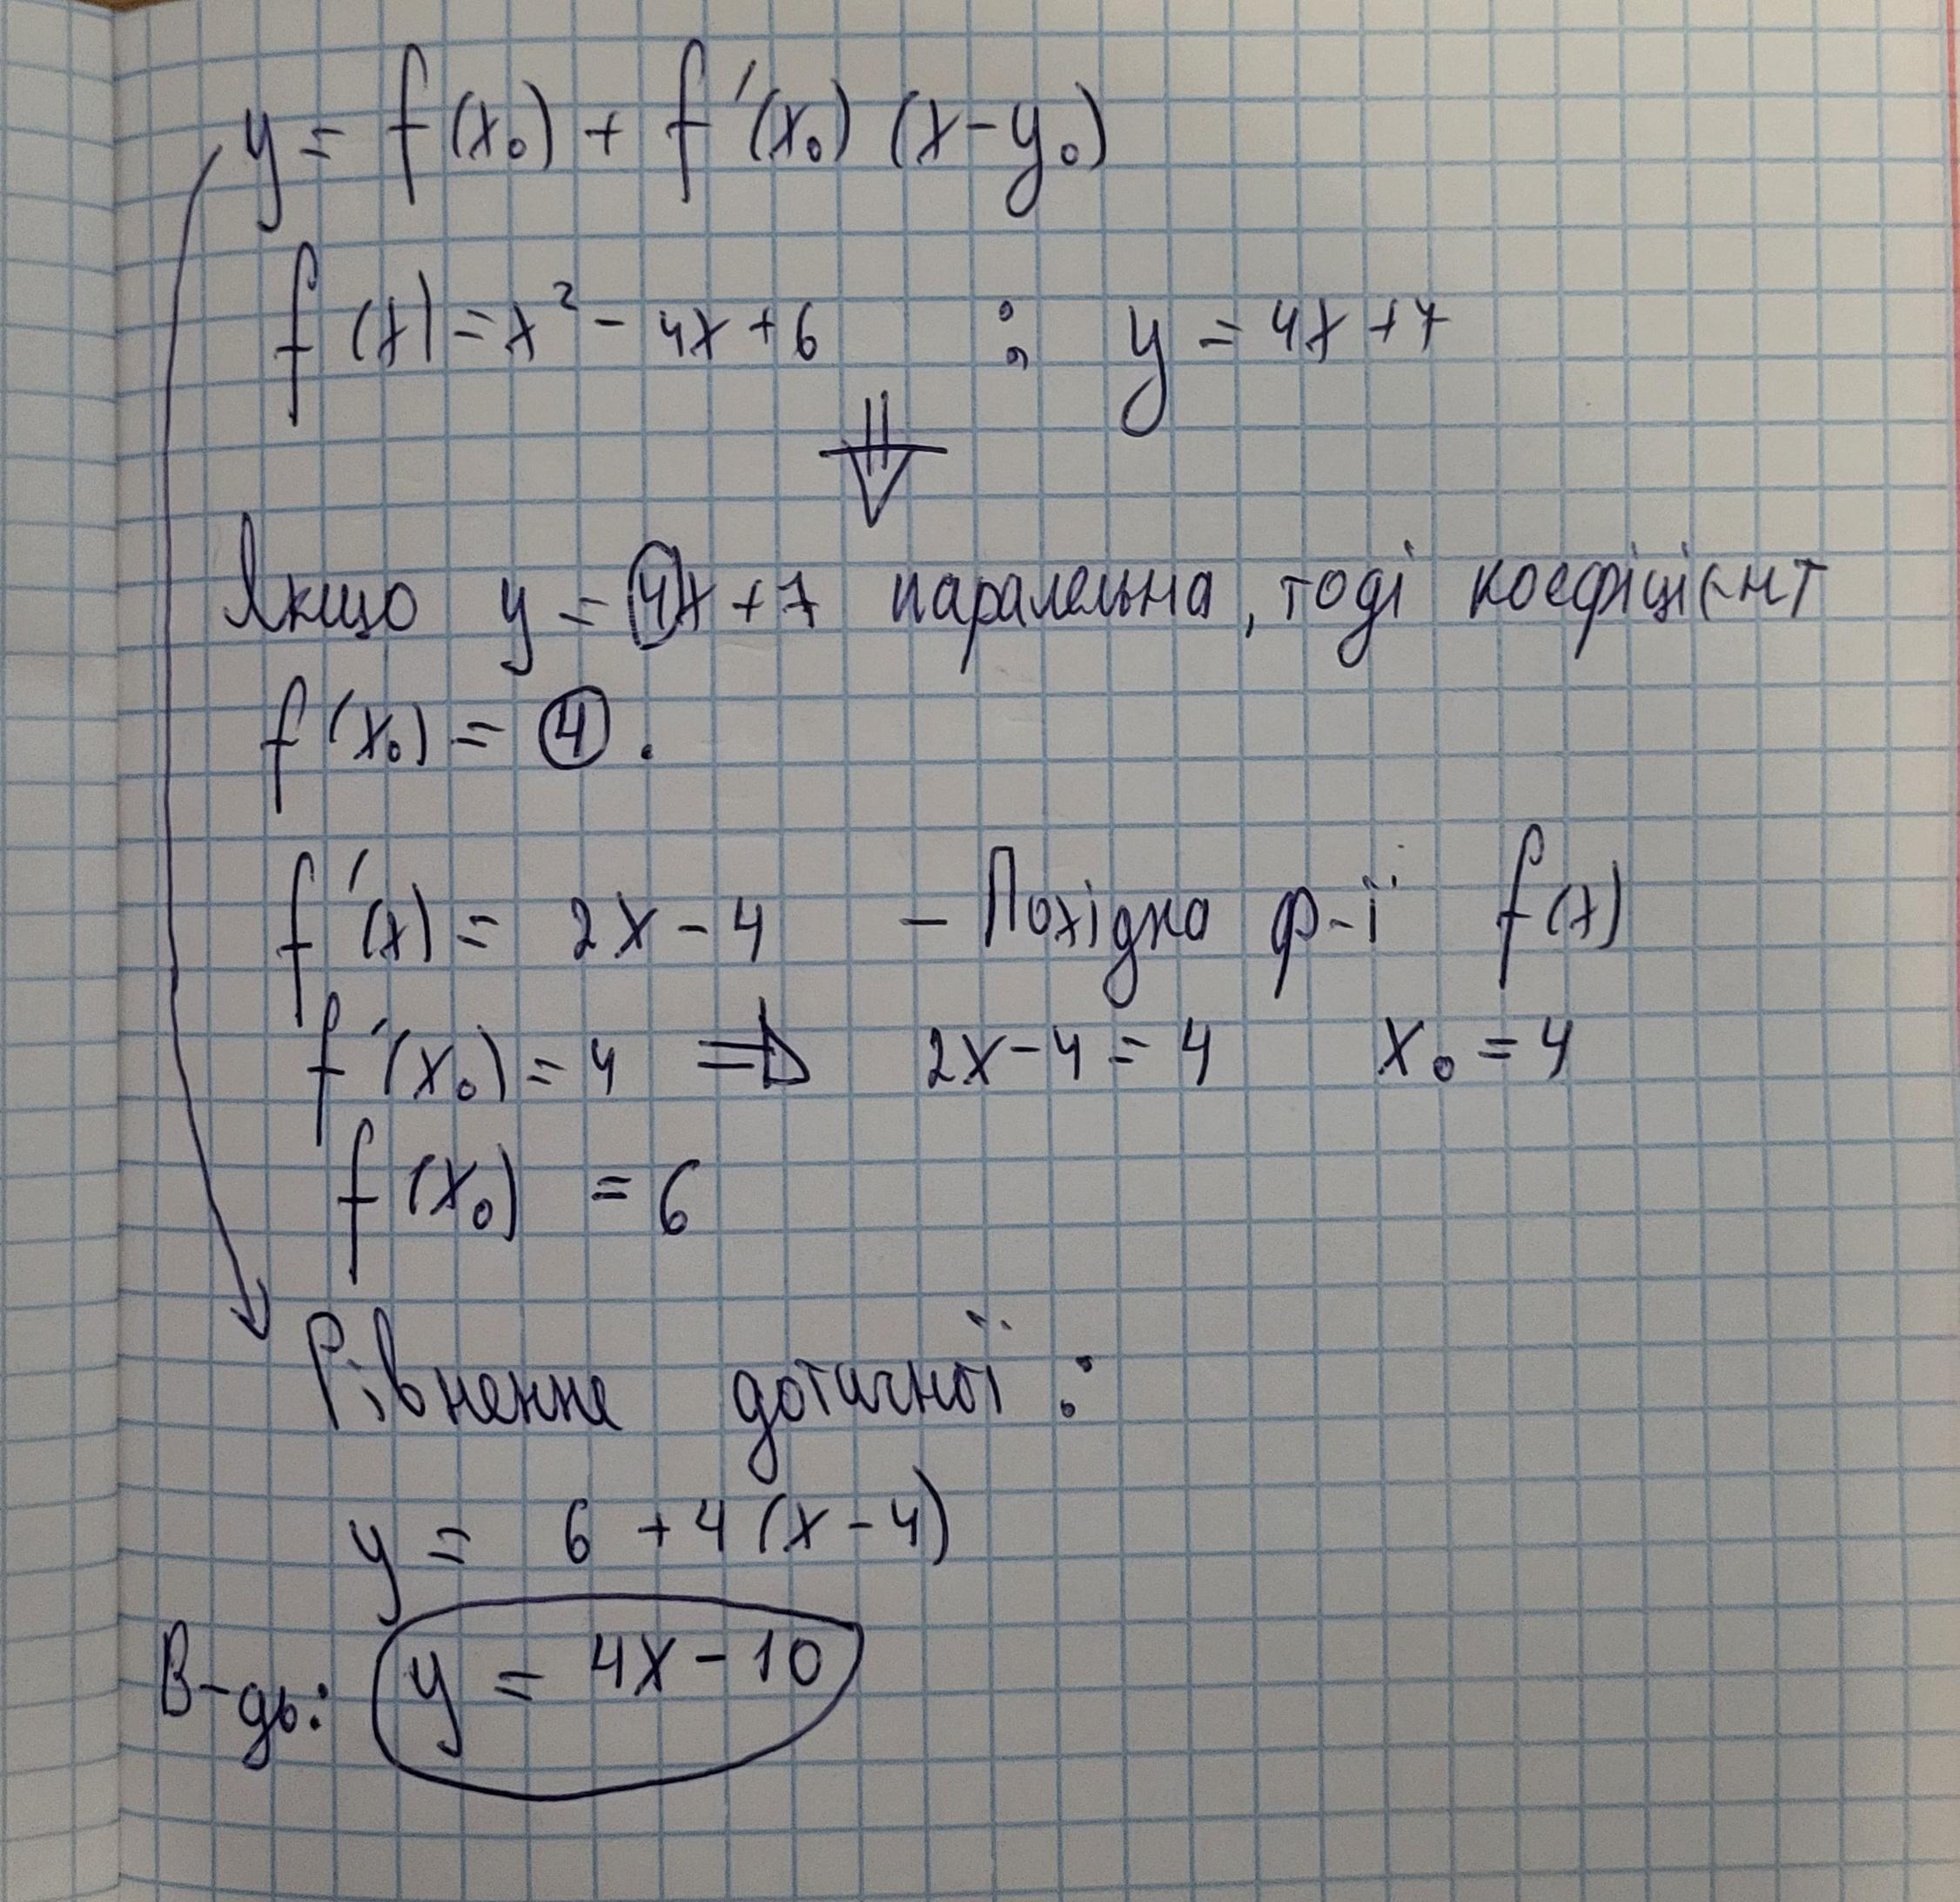 y = f(x₀) + f'(x₀) (x - y₀)
f(x) = x² - 4x + 6 ; y = 4x + 7
Якщо y = 4x + 7 паралельна, тоді коефіцієнт
f(x₀) = 4.
f'(x) = 2x - 4 - Похідна ф-ії f(x)
f'(x₀) = 4 ⇒ 2x - 4 = 4 x₀ = 4
f(x₀) = 6
Рівняння дотичної :
y = 6 + 4(x - 4)
В-дь: y = 4x - 10